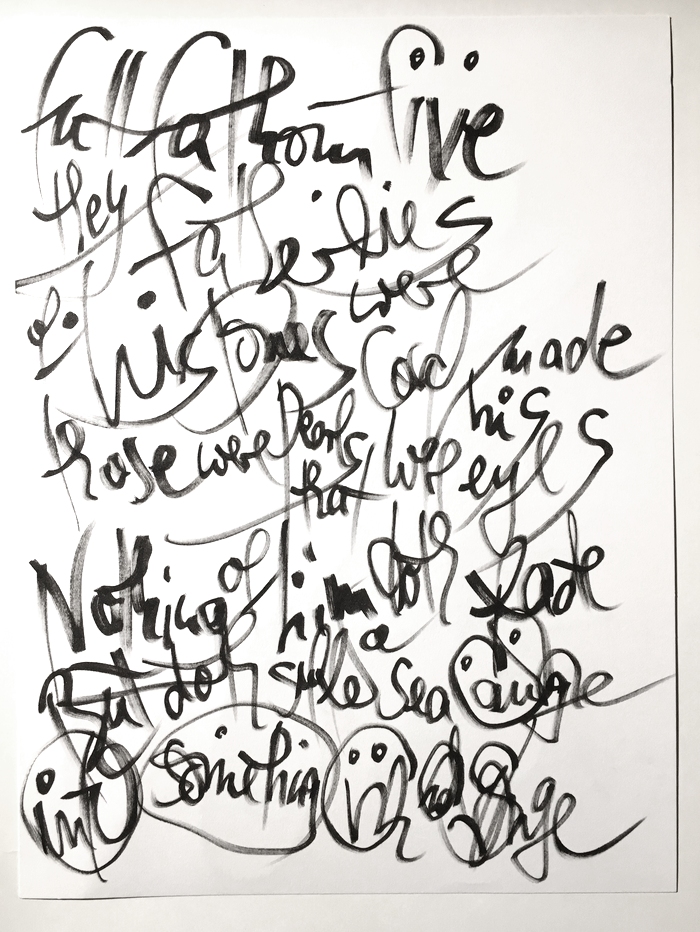 full fathom five
they father lies
of his bones were
coral made
those were pearls that were his eyes
Nothing of him doth fade
But doth suffer a sea change
into something rich and strange